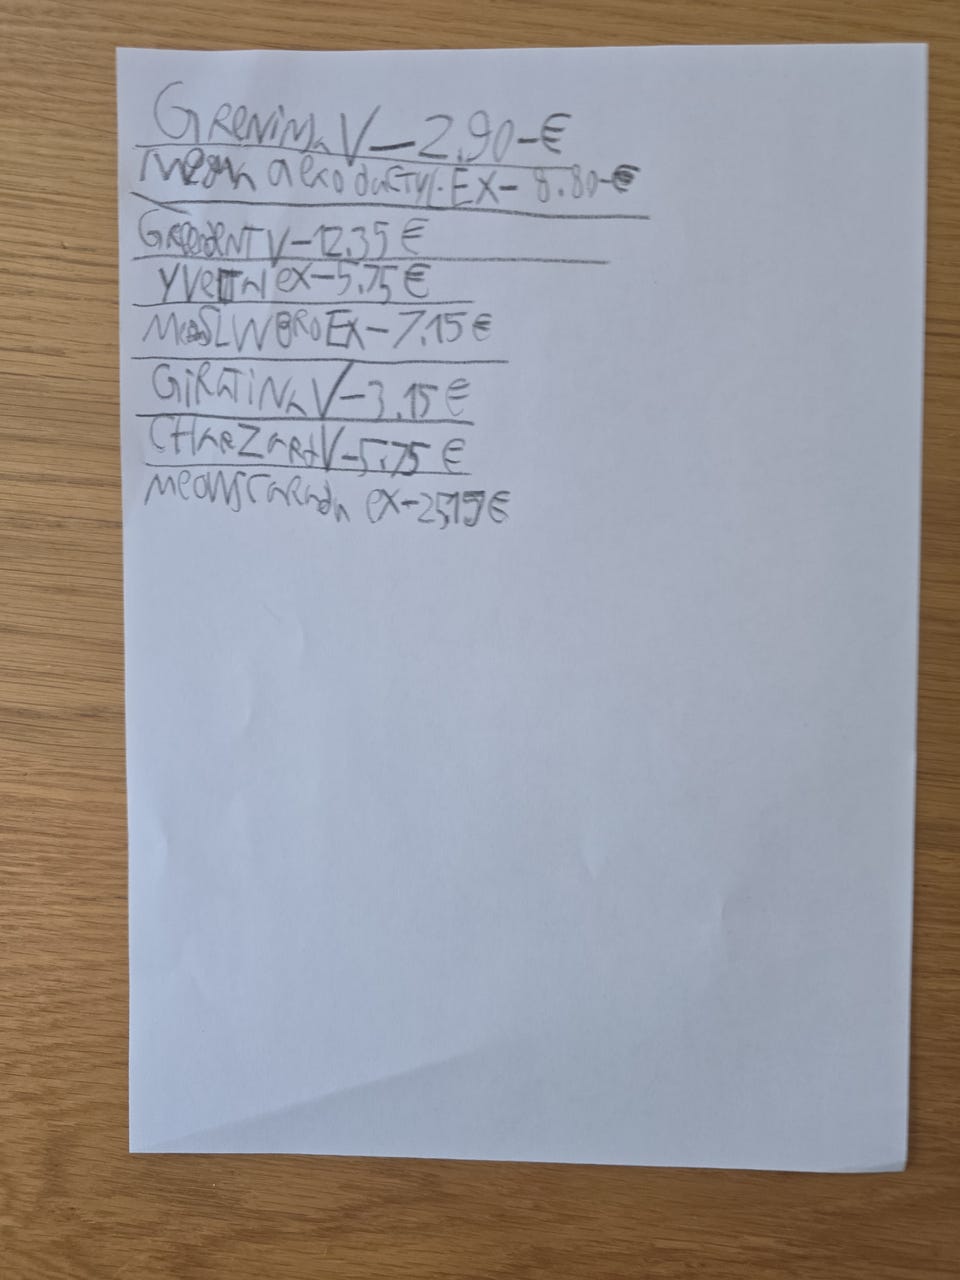 GRENiMa V-2.90-€
mega aeroductyl.EX-8.80-€
GREEDENT V-12.35€
YVeltal ex-5.75€
MegaSLWBROEX-7.15€
GiRaTiNa V-3.15€
CHaRZaRd V-5.75€
meowscarada ex-25,15€